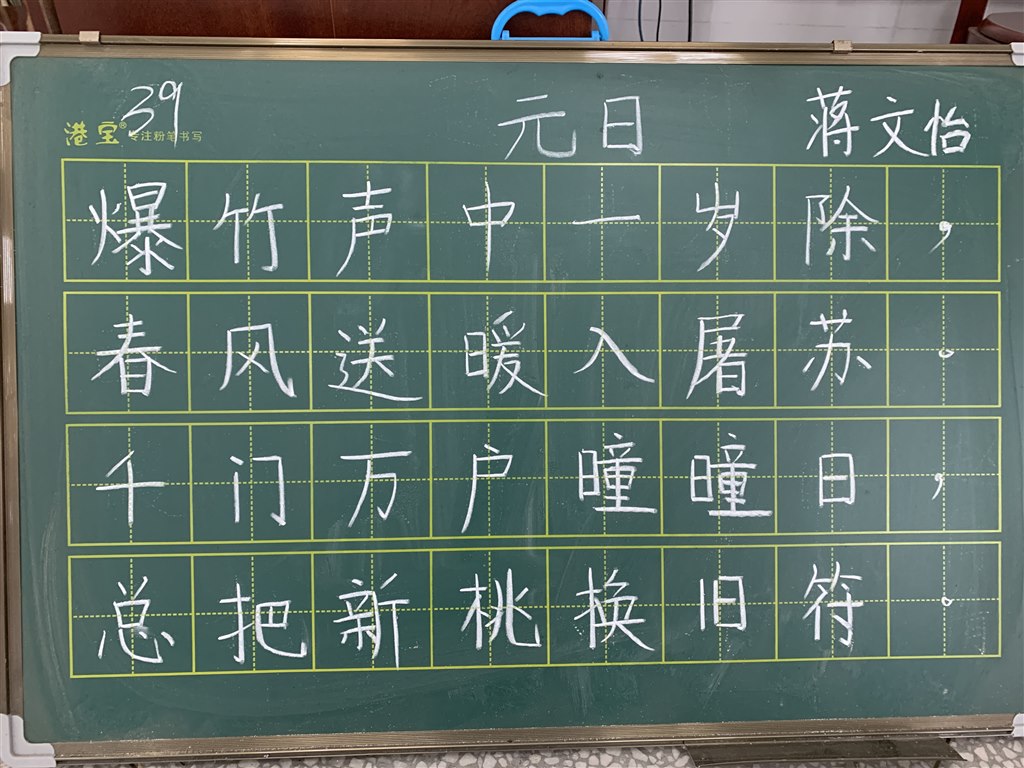 39 元日 蒋文怡
港宝® 专注粉笔书写
爆竹声中一岁除，
春风送暖入屠苏。
千门万户曈曈日，
总把新桃换旧符。